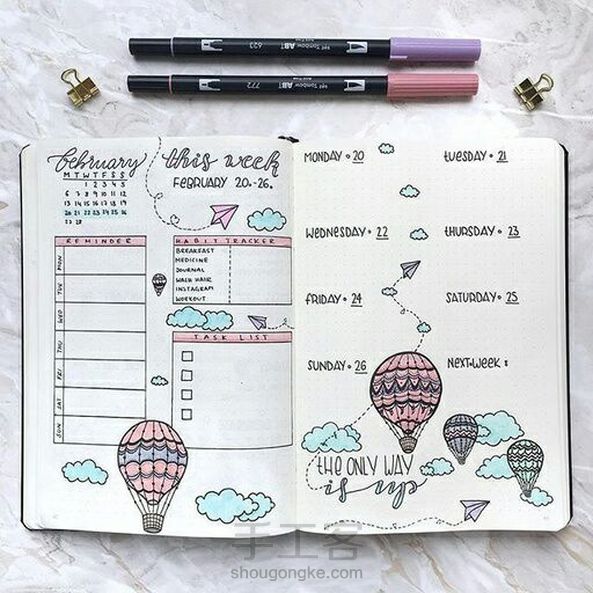 623 Tombow ABT
772 Tombow ABT
february
M T W T F S S
1 2 3 4 5
6 7 8 9 10 11 12
13 14 15 16 17 18 19
20 21 22 23 24 25 26
27 28
this week
FEBRUARY 20.-26.
REMINDER
MON
TUE
WED
THU
FRI
SAT
SUN
HABIT TRACKER
BREAKFAST
MEDICINE
JOURNAL
WASH HAIR
INSTAGRAM
WORKOUT
TASK LIST
MONDAY • 20
TUESDAY • 21
WEDNESDAY • 22
THURSDAY • 23
FRIDAY • 24
SATURDAY • 25
SUNDAY • 26
NEXT WEEK :
the ONLY WAY
is up
手工客
shougongke.com